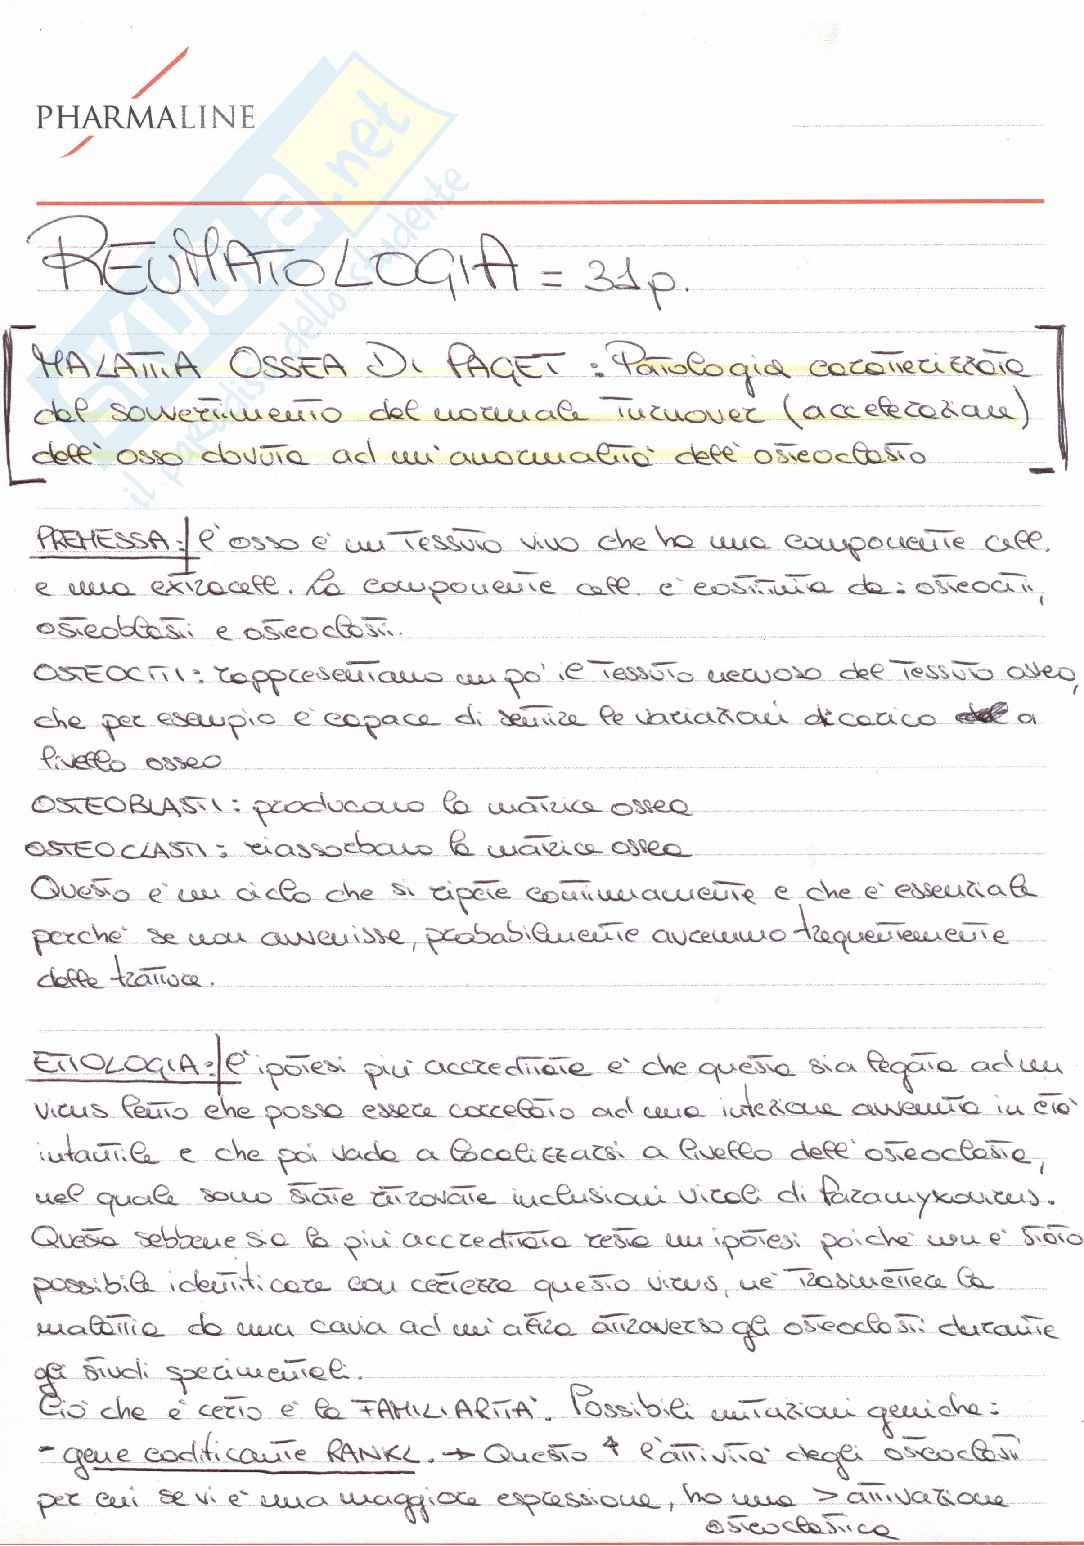 PHARMALINE
SKUOLA.net
il paradiso dello studente
REUMATOLOGIA = 31p.
MALATTIA OSSEA DI PAGET: Patologia caratterizzata
dal sovvertimento del normale turnover (accelerazione)
dell'osso dovuta ad un'anormalità dell'osteoclasto
PREMESSA: l'osso è un tessuto vivo che ha una componente cell.
e una extracell. La componente cell. è costituita da: osteociti,
osteoblasti e osteoclasti.
OSTEOCITI: rappresentano un po' il tessuto nervoso del tessuto osseo,
che per esempio è capace di sentire le variazioni di carico a
livello osseo
OSTEOBLASTI: producono la matrice ossea
OSTEOCLASTI: riassorbano la matrice ossea
Questo è un ciclo che si ripete continuamente e che è essenziale
perché se non avvenisse, probabilmente avremmo frequentemente
delle fratture.
ETIOLOGIA: l'ipotesi più accreditata è che questa sia legata ad un
virus lento che possa essere correlato ad una infezione avvenuta in età
infantile e che poi vada a localizzarsi a livello dell'osteoclasta,
nel quale sono state ritrovate inclusioni virali di Paramyxovirus.
Questa sebbene sia la più accreditata resta un ipotesi poiché non è stato
possibile identificare con certezza questo virus, né trasmettere la
malattia da una cavia ad un'altra attraverso gli osteoclasti durante
gli studi sperimentali.
Ciò che è certo è la FAMILIARITÀ. Possibili mutazioni geniche:
- gene codificante RANKL. → Questo ↑ l'attività degli osteoclasti
per cui se vi è una maggiore espressione, ho una > attivazione
osteoclastica